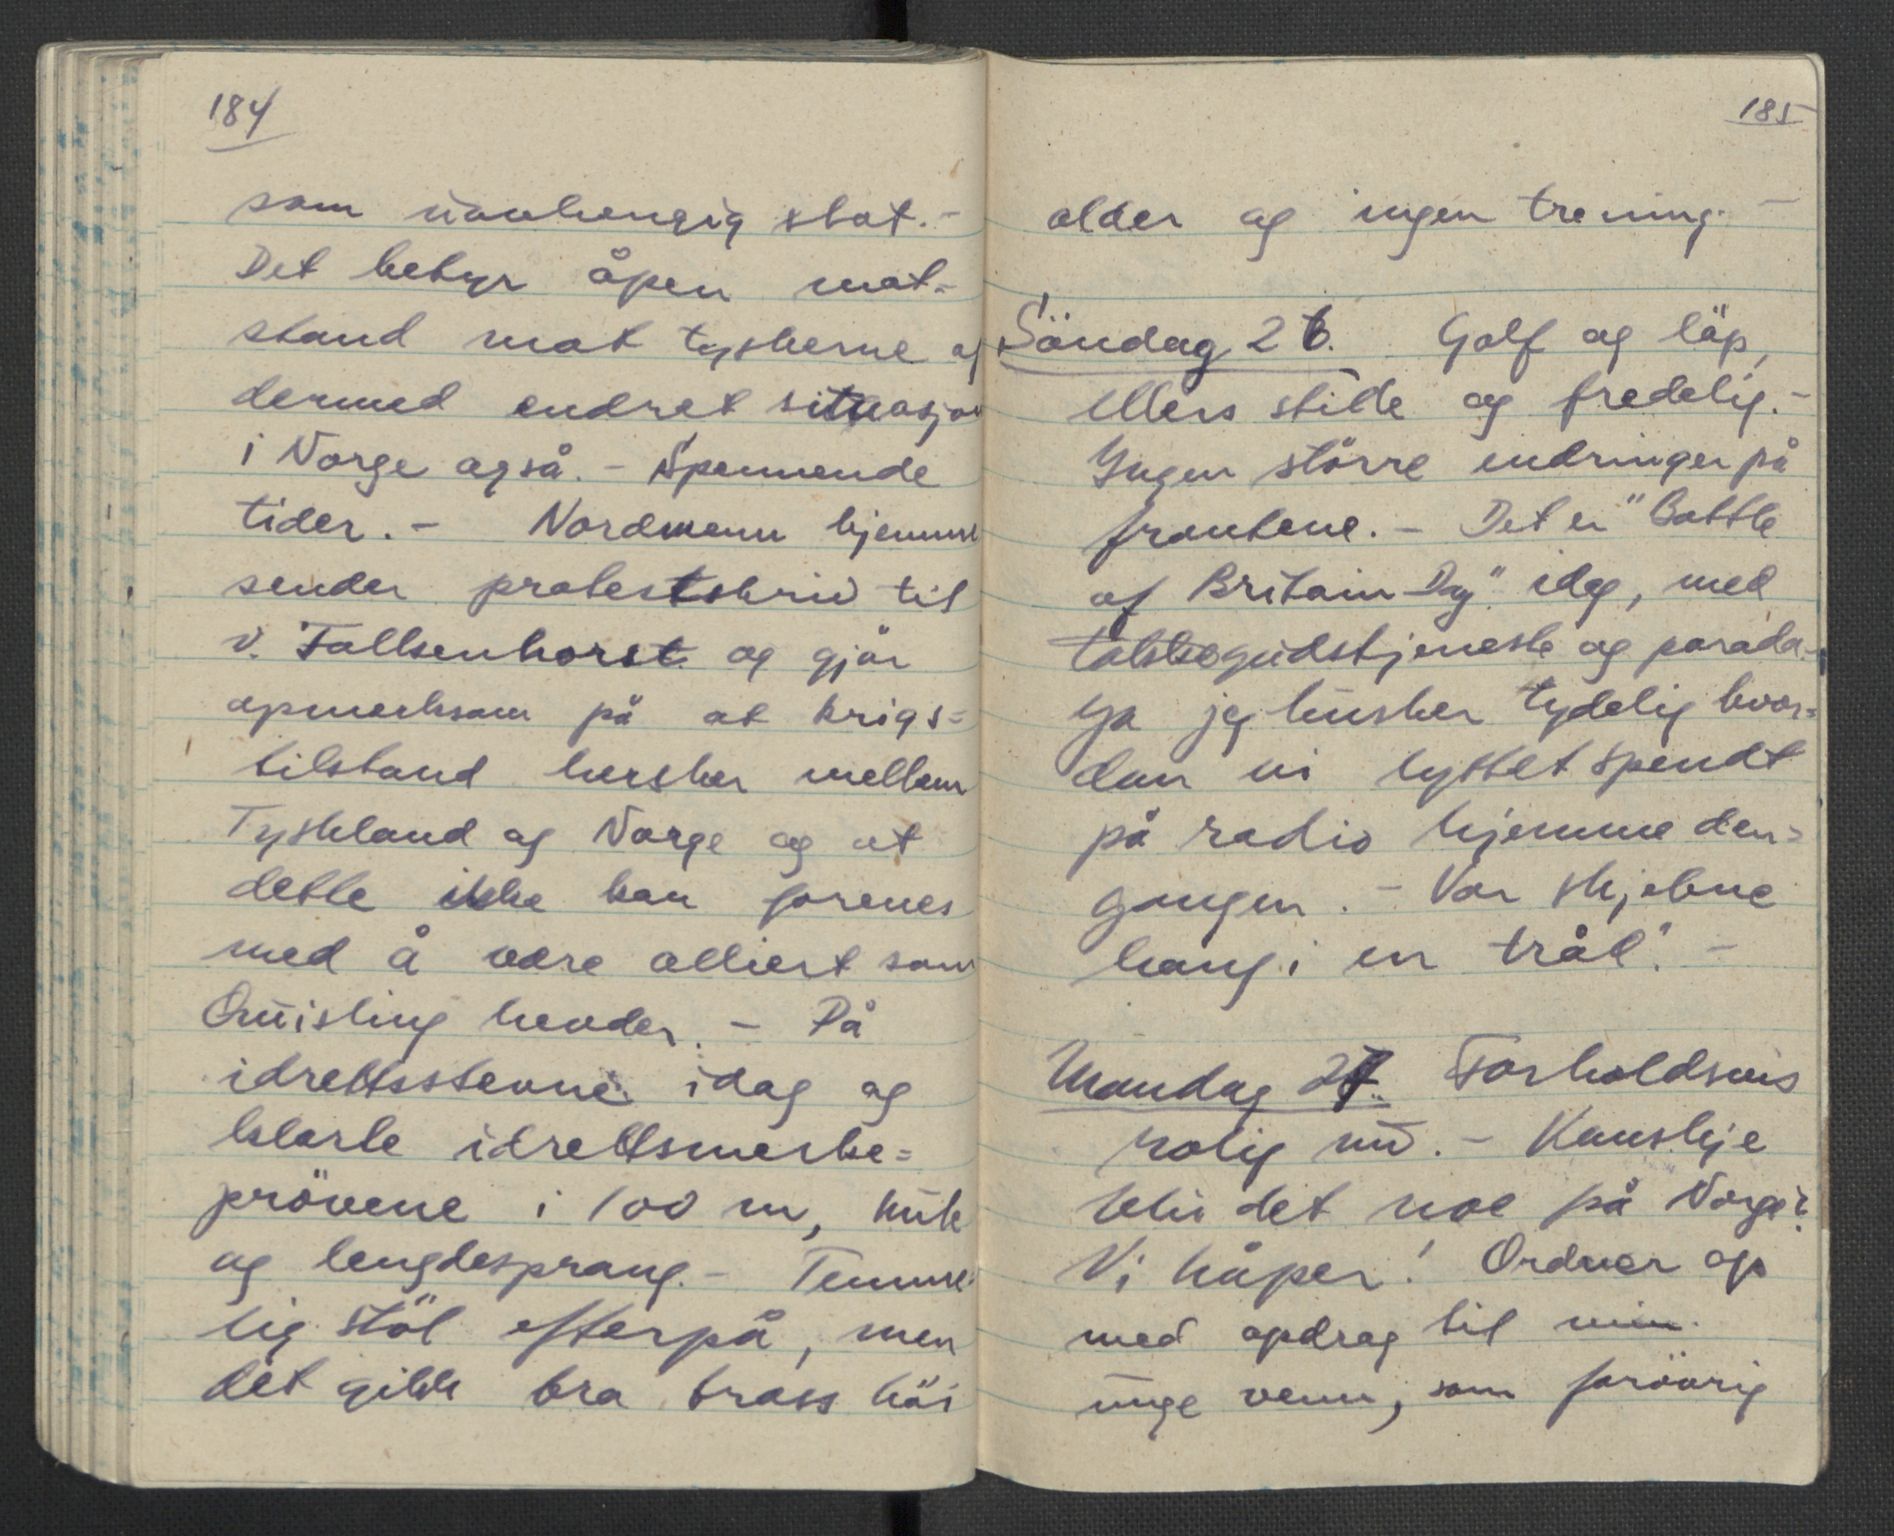 184
som uavhengig stat. -
Det betyr åpen mot-
stand mot tyskerne og
dermed endret situasjon
i Norge også. - Spennende
tider. - Nordmenn hjemme
sender protestskriv til
v. Falkenhorst og gjör
opmerksom på at krigs=
tilstand hersker mellem
Tyskland og Norge og at
dette ikke kan forenes
med å være alliert som
Quisling hevder. - På
idrettsstevne idag og
klarte idrettsmerke=
prövene i 100 m, kule
og lengdesprang. - Temme
lig stöl efterpå, men
det gikk bra trass höi
185
alder og ingen trening. -
Söndag 26. Golf og löp,
ellers stille og fredelig. -
Ingen större endringer på
frontene. - Det er "Battle
of Britain Day" idag, med
takkegudstjeneste og parada.-
Ja jeg husker tydelig hvor=
dan vi lyttet spendt
på radio hjemme den=
gangen. - Vår skjebne
hang i en tråd". -
Mandag 27. Forholdsvis
rolig nu. - Kanskje
blir det noe på Norge?
Vi håper! Ordner op
med opdrag til min
unge venn, som forövrig